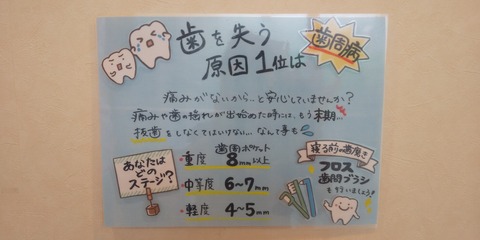 歯を失う
原因1位は
歯周病
痛みがないから..と安心していませんか?
痛みや歯の揺れが出始めた時には、もう末期...
抜歯をしなくてはいけない...なんて事も
あなたは
どの
ステージ?
歯周ポケット
・重度 8mm以上
・中等度 6~7mm
・軽度 4~5mm
寝る前の歯磨き
フロス
歯間ブラシ
を行いましょう!